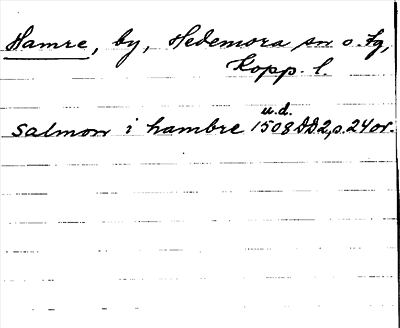 Hamre, by, Hedemora sn o. tg,
Kopp. l.
u.d.
salmon i hambre 1508 DD2, s. 24 or.